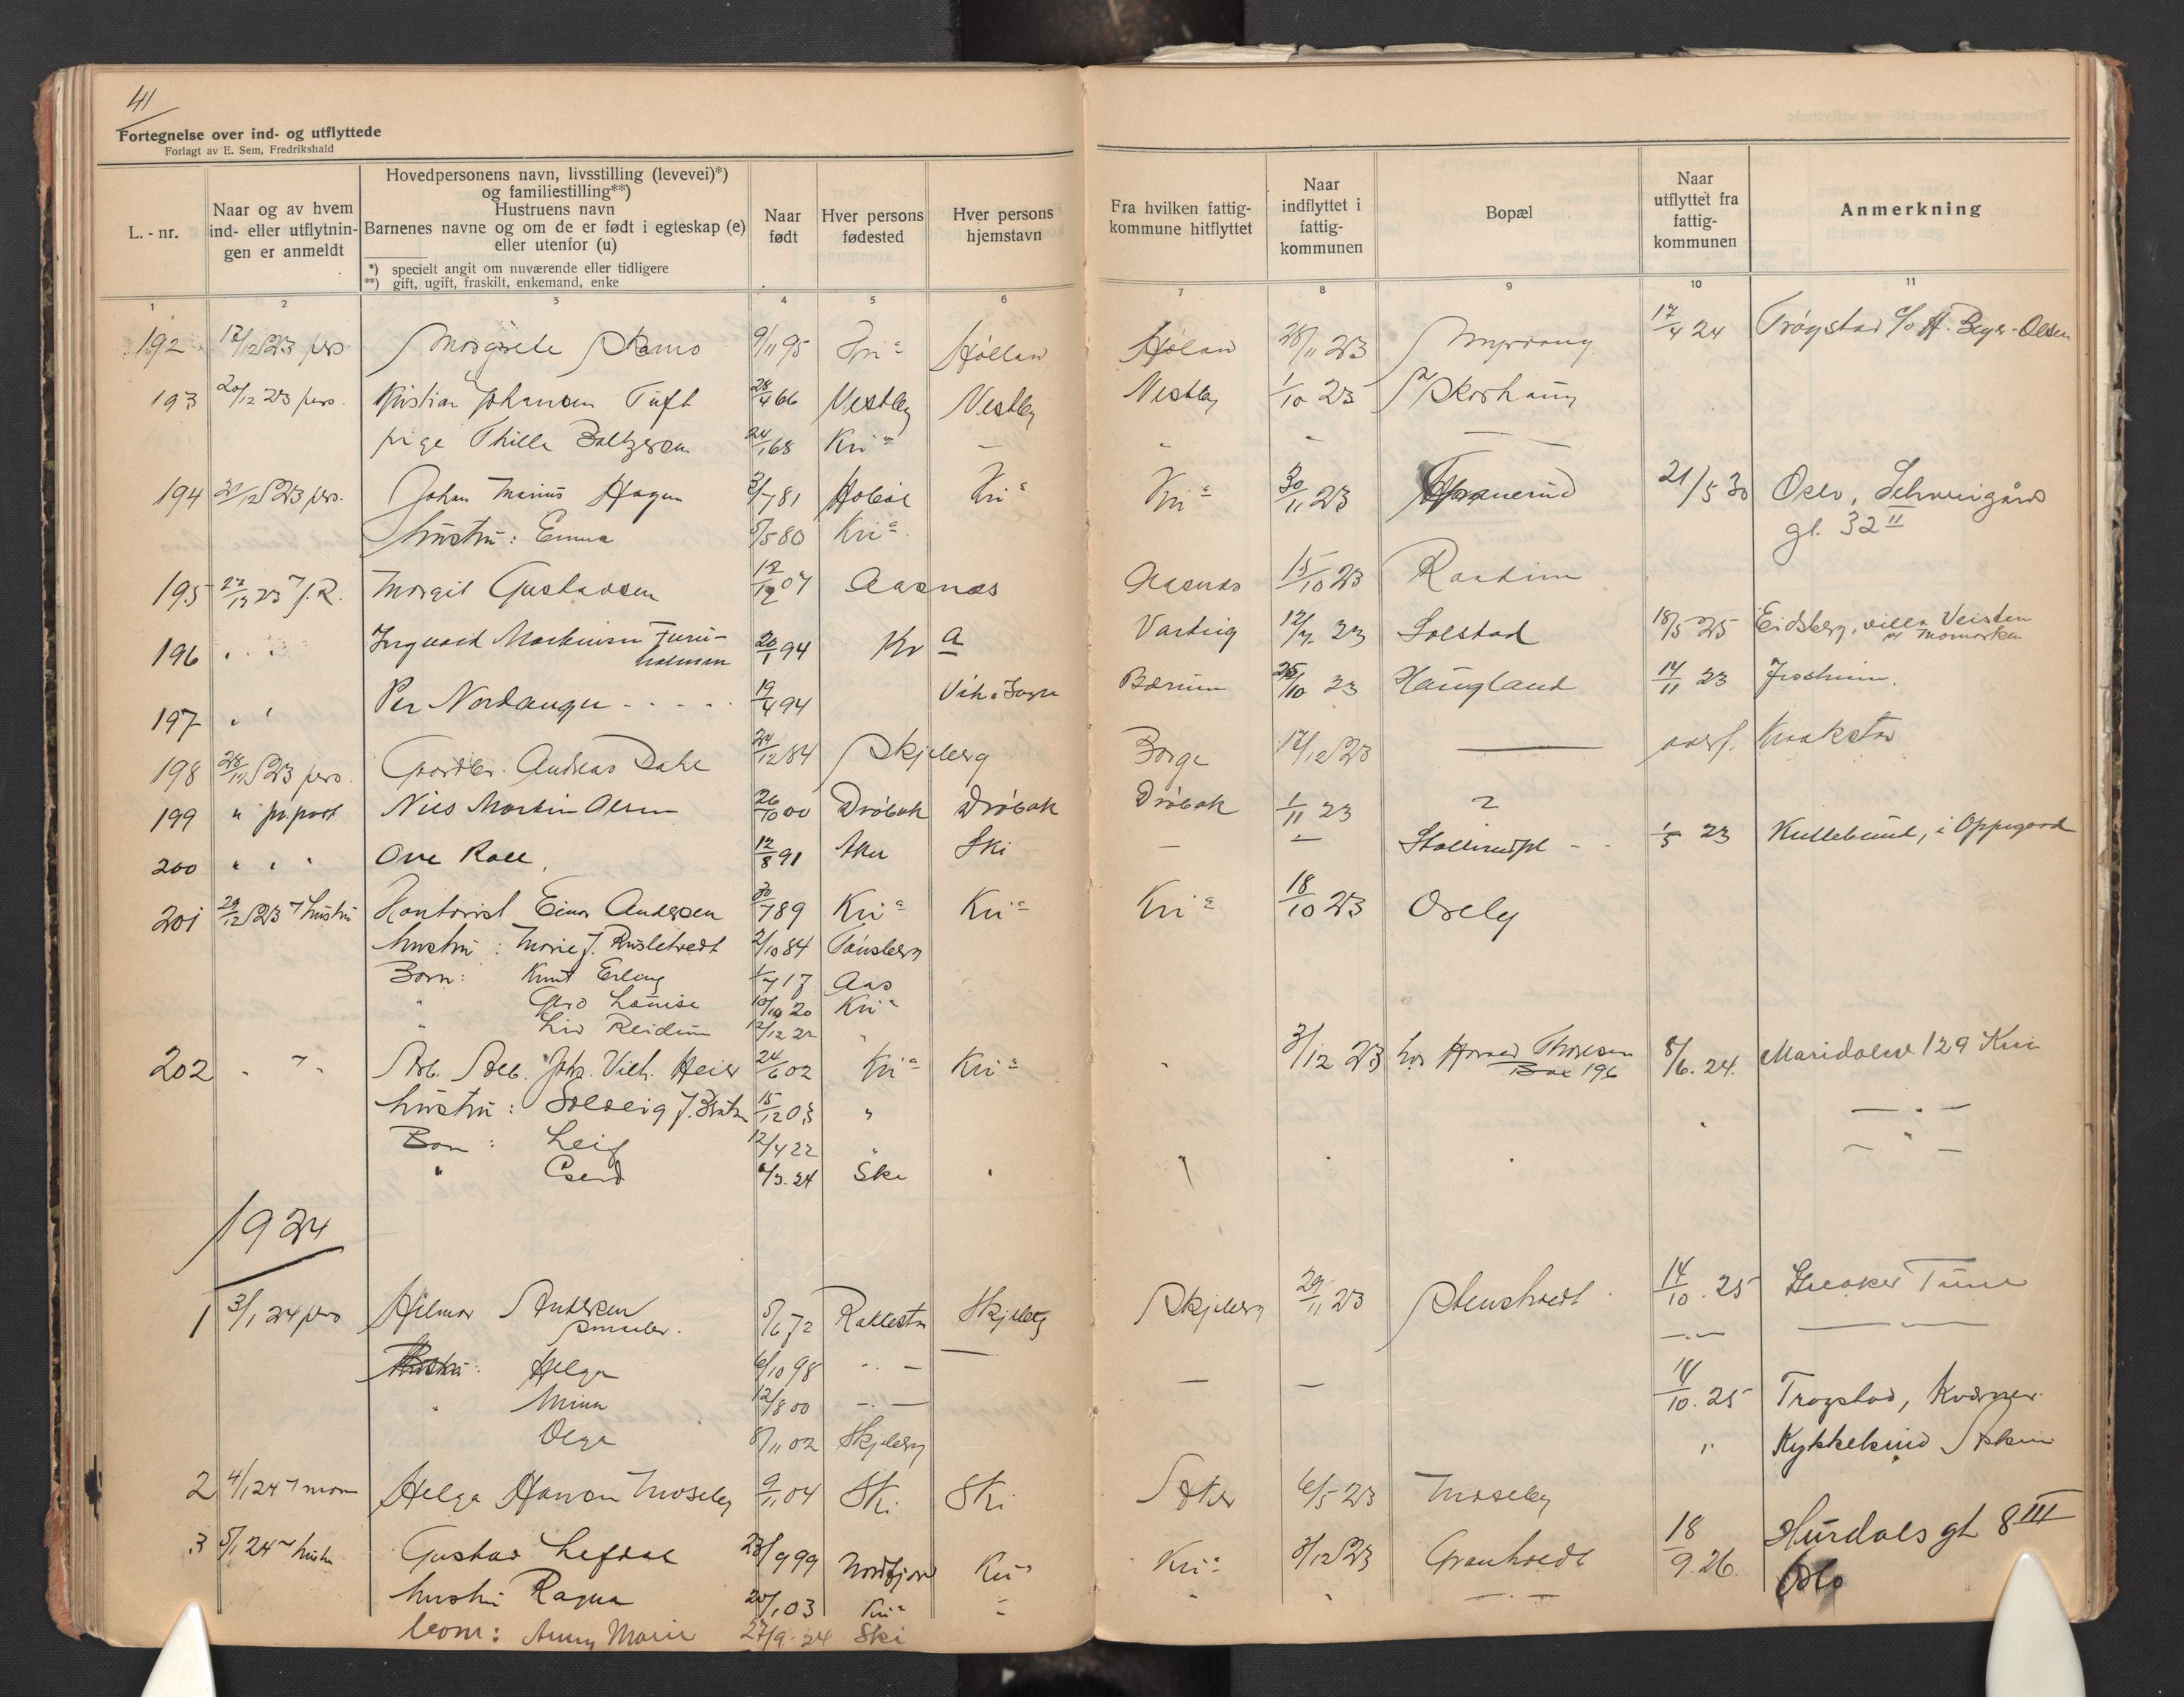 41
Fortegnelse over ind- og utflyttede
Forlagt av E. Sem, Fredrikshald
L.-nr.
Naar og av hvem
ind- eller utflytnin-
gen er anmeldt
Hovedpersonens navn, livsstilling (levevei)*)
og familiestilling**)
Hustruens navn
Barnenes navne og om de er født i egteskap (e)
eller utenfor (u)
*) specielt angit om nuværende eller tidligere
**) gift, ugift, fraskilt, enkemand, enke
Naar
født
Hver persons
fødested
Hver persons
hjemstavn
Fra hvilken fattig-
kommune hitflyttet
Naar
indflyttet i
fattig-
kommunen
Bopæl
Naar
utflyttet fra
fattig-
kommunen
Anmerkning
1 2 3 4 5 6 7 8 9 10 11
192 17/12 23 pers Margrete 9/11 95 Kri a Høland Høland 28/11 23 17/4 24 Trøgstad c/o H. Beyer-Olsen
193 20/12 23 pers. Kristian Johansen Tuft 28/4 66 Vestby Vestby Vestby 1/10 23 Skorhaug
pige Thilla Baltzersen 24/1 68 Kri a — " " —
194 21/12 23 pers. Johan Marius Hagen 3/7 81 Hobøl Kri a Kri a 30/11 23 21/5 30 Oslo, Schweigaards
hustru: Emma 5/5 80 Kri a gt. 32 II
195 22/12 23 J.R. Margit Gustavsen 12/12 07 Aasnæs Aasnæs 15/10 23
196 " " Ingvald Martinsen Furu- 20/1 94 Kr a Varteig 23 Solstad 18/5 25 Eidsberg, villa Veisten
holmen Momarken
197 " " Per Nordanger - - - - 19/4 94 Vik i Sogn Bærum 25/10 23 Haugland 14/11 23 Jessheim.
198 28/12 23 pers. Gaardbr. Andreas Dahl 24/12 84 Skjeberg Borge 17/12 23 — Kraakstad
199 " pr. post Nils Martin Olsen 26/10 00 Drøbak Drøbak Drøbak 1/11 23 ?
200 " " " Ove Roll 12/8 91 Aker Ski — — - - 1/5 23 Kullebund, i Oppegaard
201 29/12 23 hustru Kontorist Einar Andersen 30/7 89 Kri a Kri a Kri a 18/10 23 Orely
hustru: Marie J. 2/10 84 Tønsberg
Barn: Knut Erling 17 Aas
" Gerd Louise 10/10 20 Kri a
" Liv Reidun 12/12 22 "
202 " " Joh. Vilh. Heier 24/6 02 Kri a Kri a " 3/12 23 hos Harald Thoresen 8/6. 24. Maridalsv 129 Kria
Box 196
hustru: Solveig J. 15/12 03 " — " —
Barn: Leif 12/4 22 " — " —
" 24 Ski "
1924
1 3/1 24 pers Hilmar Andersen 5/6 72 Rakkestad Skjeberg Skjeberg 29/11 23 Stenstvedt 14/10. 25 Greaker Tune
smuler.
Helga 6/10 98 - " - —
" Minna 12/8 00 - " - — — 14/10. 25 Trøgstad, Kværner.
Olga 8/11 02 Skjeberg " Kykkelsrud Askim
2 4/1 24 mor Helga Hanson Moseby 9/11 04 Ski Ski Aker 6/5 23 Moseby
3 5/1 24 hustru Gustav Lefdal 23/9 99 Nordfjord Kri a Kri a 3/12 23 Grantvedt 18/9. 26. Hurdals gt 8 III
hustru Ragna 20/1 03 Kri a " Oslo
barn: Anny Marie 27/9. 24 Ski